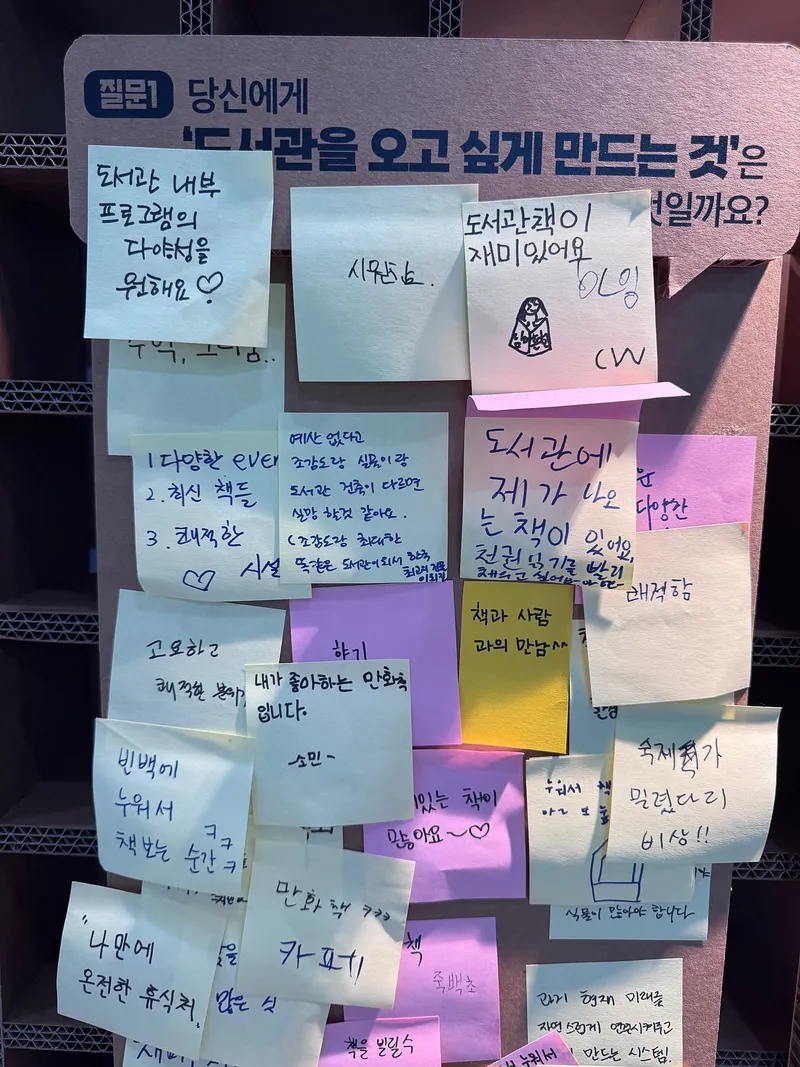 질문1 당신에게
'도서관을 오고 싶게 만드는 것'은
일까요?
도서관 내부
프로그램의
다양성을
원해요♡
시원함.
도서관책이
재미있어요
CW
1 다양한 even
2. 최신 책들
3. 쾌적한
♡ 시설
예산 없다고
조감도랑 실물이랑
도서관 건축이 다르면
실망 할것 같아요.
(조감도랑 최대한
똑같은 도서관이 되서 한국
도서관에
제가 나오
는 책이 있어요
천권 읽기를 빨리
다양한
쾌적함
고요하고
쾌적한
향기
책과 사람
과의 만남^^
내가 좋아하는 만화책
입니다.
-소민-
빈백에
누워서
책보는 순간
ㅋㅋㅋ
있는 책이
많아요~♡
누워서 책
숙제가
밀렸다리
비상!!
식물이 많아야 합니다
만화책 ㅋㅋㅋ
카페
"나만에
온전한 휴식처,
책
죽백초
책을 빌릴수
과거 현재 미래를
자연스럽게 연결시켜주고
만드는 시스템.
누워서